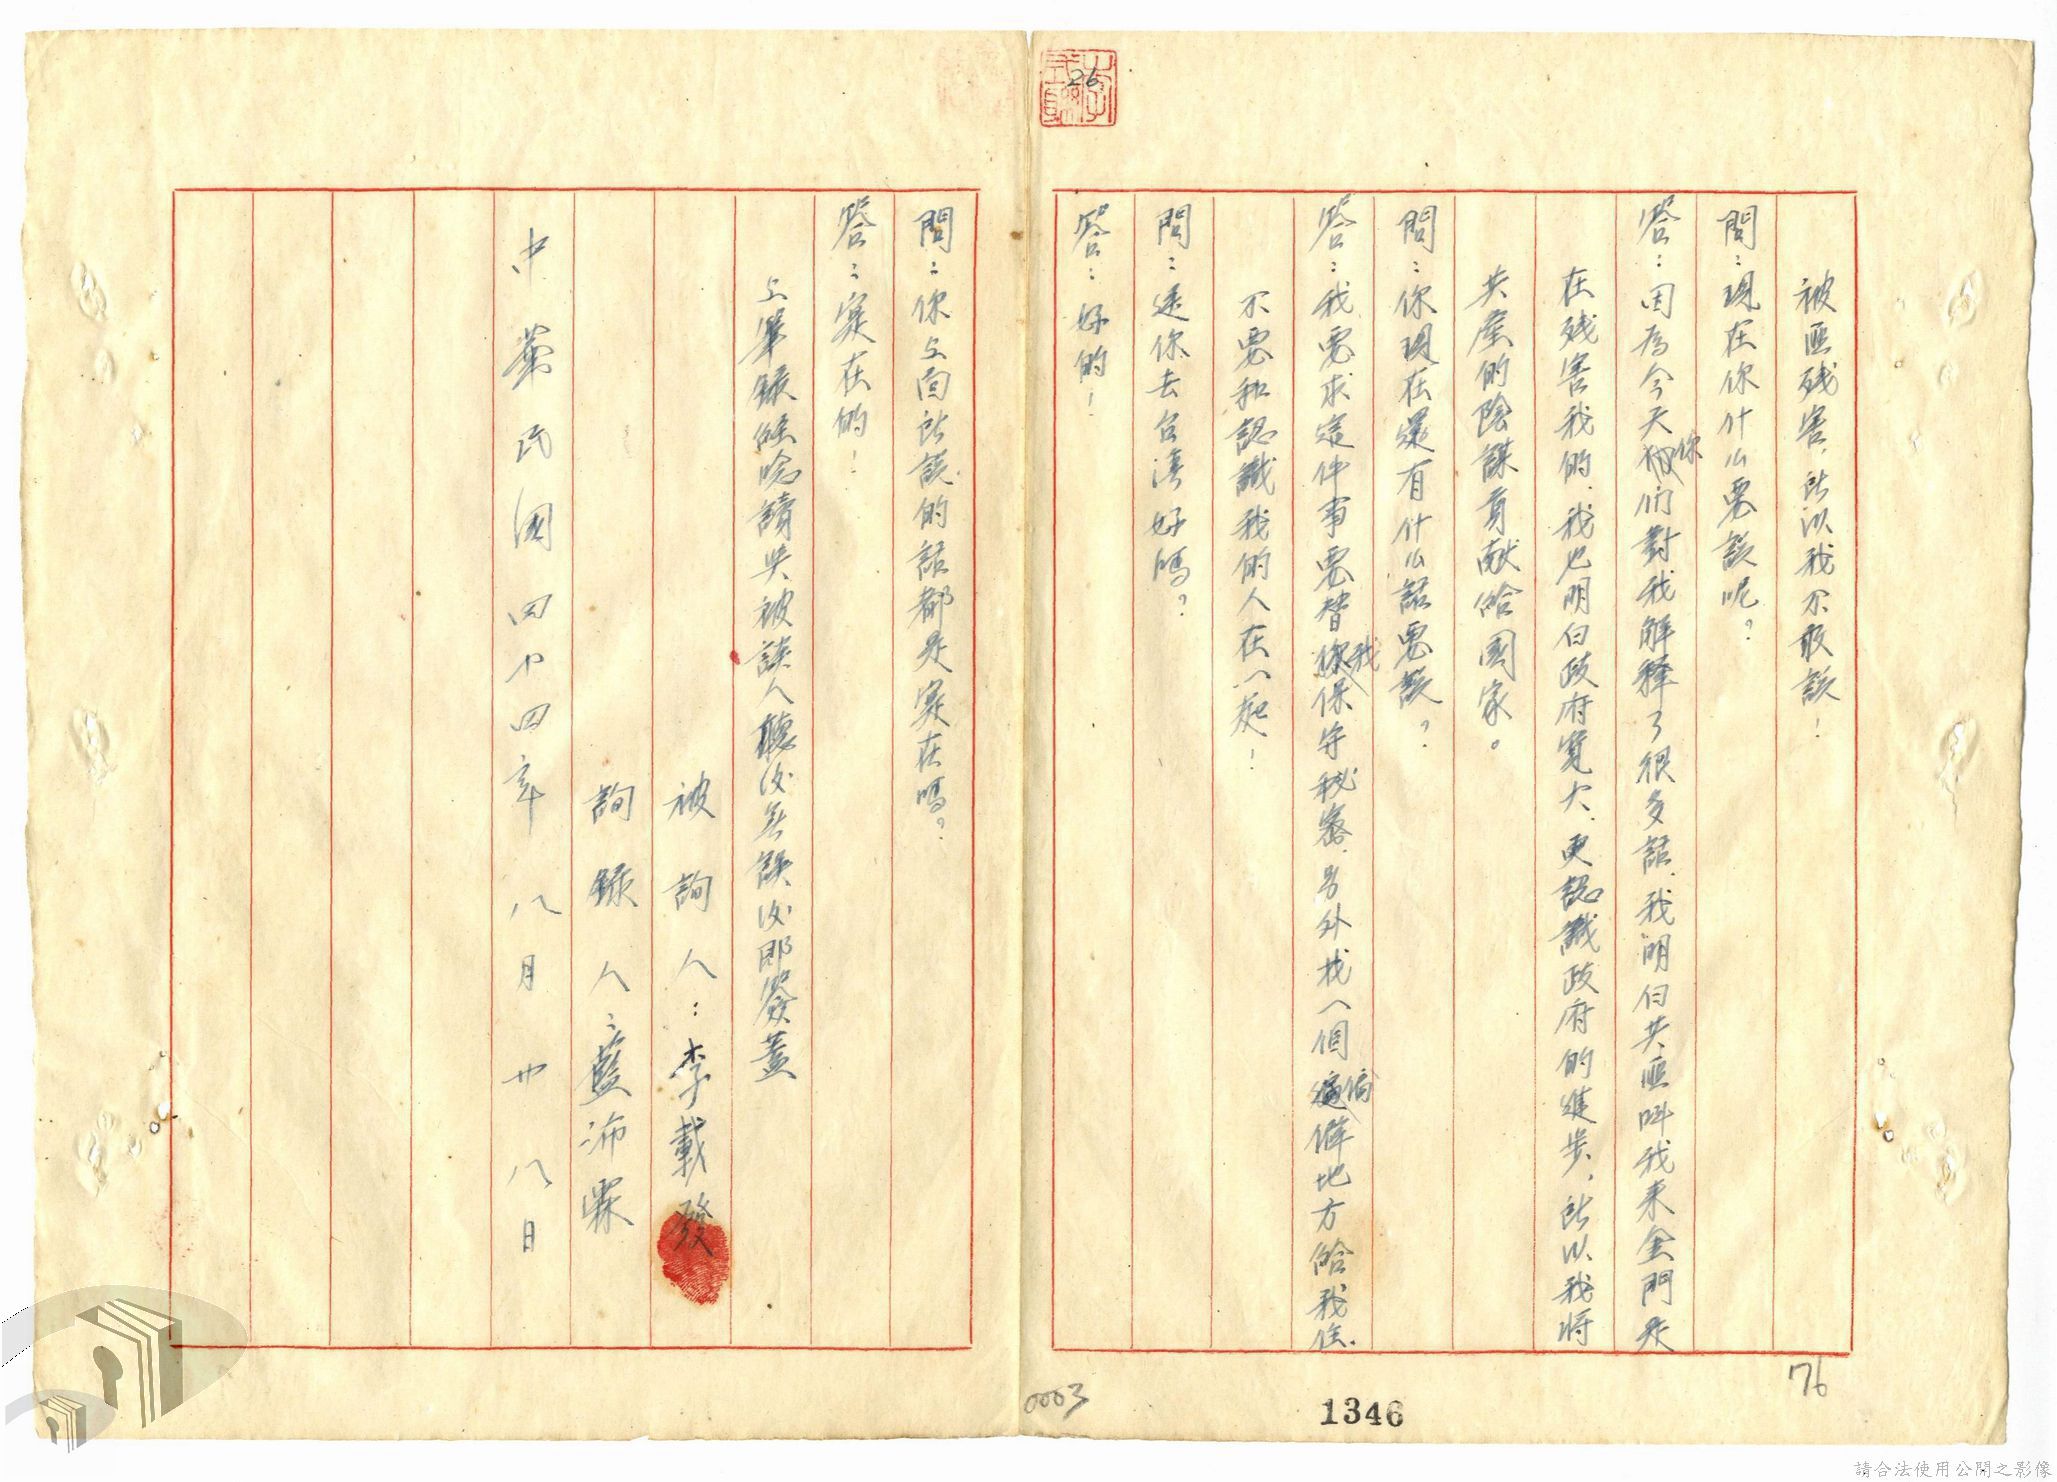 26
被匪残害，所以我不敢談！
問：現在你什么要談呢？
答：因為今天你们對我解释了很多話，我明白共匪叫我來金門是
在残害我的，我也明白政府寬大，更認識政府的進步，所以我將
共產的陰謀貢献給國家。
問：你現在還有什么話要談？
答：我要求這件事要替我保守秘密，另外找一個偏僻地方給我住，
不要和認識我的人在一起！
問：送你去台湾好嗎？
答：好的！
問：你上面所談的話都是实在嗎？
答：实在的！
上筆錄經唸讀與被談人聽後無誤後即簽蓋
被詢人：李載發
詢錄人：藍沛霖
中華民國四十四年八月廿八日
0003
1346
76
請合法使用公開之影像